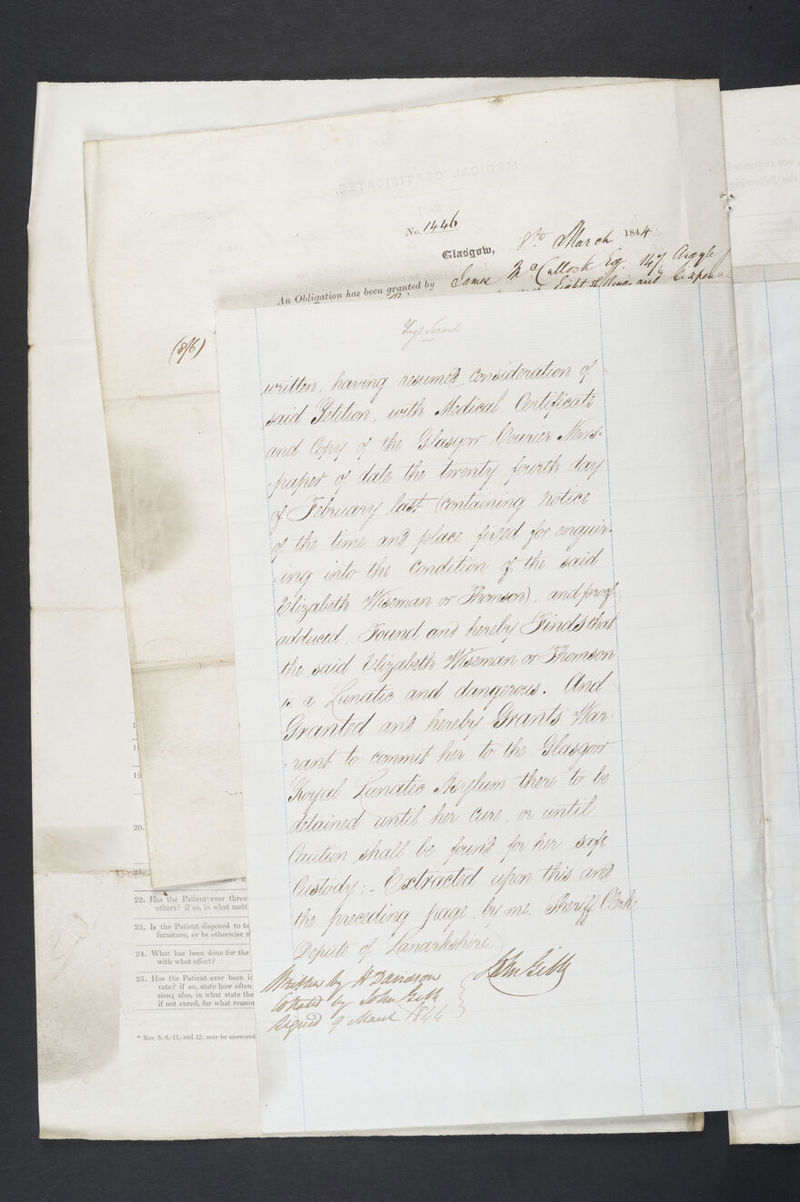 No. 1446
Glasgow, 8th March 1844
An Obligation has been granted by James McCullock Esq. 147 Argyle
Eight Shillings and Sixpence
(8/6)
Page Second
written, having resumed consideration of
said Petition, with Medical Certificate
and Copy of the Glasgow Courier News-
=paper of date the twenty fourth day
of February last (containing notice
of the time and place fixed for enquir-
=ing into the Condition of the said
Elizabeth Wiseman or Thomson), and proof
adduced, Found and hereby Finds that
the said Elizabeth Wiseman or Thomson
is a Lunatic and dangerous. And
Granted and hereby Grants War-
=rant to commit her to the Glasgow
Royal Lunatic Asylum there to be
detained until her Cure, or until
Caution shall be found for her safe
Custody:- Extracted upon this and
the preceding page by me, Sheriff Clerk
Depute of Lanarkshire.
Written by H Davidson
Collated by John Gibb
Signed 9 March 1844
John Gibb
20.
21.
22. Has the Patient ever threa
others? if so, in what matt
23. Is the Patient disposed to te
furniture, or be otherwise
24. What has been done for the
with what effect?
25. Has the Patient ever been i
vate? if so, state how often
sion; also, in what state the
if not cured, for what reason
* Nos. 5, 6, 11, and 12, may be answered